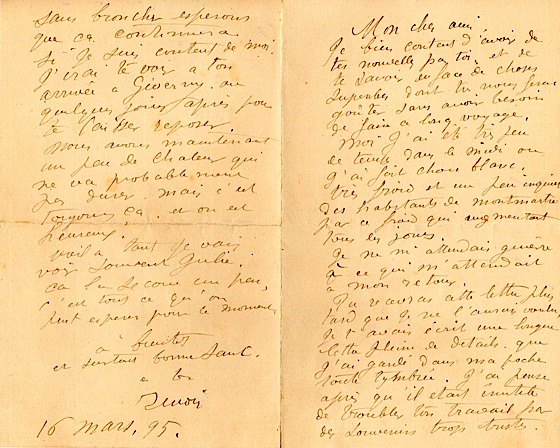 Mon cher ami
Je bien content d'avoir de
tes nouvelles par toi, et de
te savoir en face de choses
superbes dont tu nous feras
goûter sans avoir besoin
de faire ce long voyage.
Moi j'ai été très peu
de temps dans le midi ou
j'ai fait chou blanc.
très froid et un peu inquiet
des habitants de montmartre
par ce froid qui augmentait
tous les jours.
Je ne m'attendais guère
à ce qui m'attendait
à mon retour.
Tu recevras cette lettre plus
tard que je ne l'aurais voulu,
je t'avais écrit une longue
lettre pleine de details que
j'ai gardé dans ma poche
toute tymbrée. J'ai pensé
après qu'il etait inutile
de troubler ton travail par
des souvenirs trop tristes.
sans broncher esperons
que ça continuera
si je suis content de moi
j'irai te voir à ton
arrivée à Giverny. ou
quelques jours après pour
te laisser reposer.
nous avons maintenant
un peu de chaleur qui
ne va probablement
pas durer. mais c'est
toujours ça. et on est
heureux.
voilà tout je vais
voir souvent Julie.
ça la secoue un peu,
c'est tous ce qu'on
peut esperer pour le moment
à bientôt
et surtout bonne santé.
a toi
Renoir
16 mars. 95.